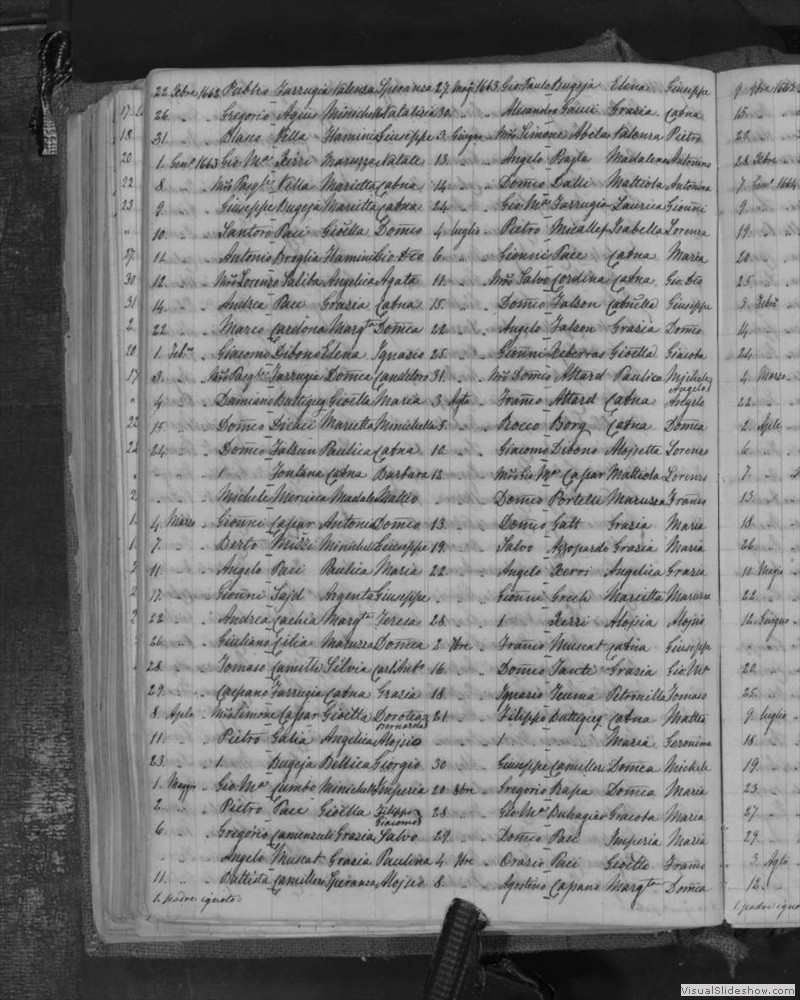 22 Xbre 1662 Publio Farrugia Valenza Speranza 27 Mag 1663 Gio Paulo Bugeja Elena Giuseppe 9 9bre 1663
17 26 Gregorio Agius Minichella Natalizia 30 Alesandro Gauci Grazia Catna 15
18 31 Blasco Villa Flaminia Giuseppe 3 Giugno Mro Simone Abela Valenza Pietro 20
20 1 Genro 1663 Gio Ma Xerri Maruzza Natale 13 Angelo Rajla Madalena Antonino 28 Xbre
22 8 Villa Marietta Catna 14 Domco Dalli Mattiola Antonina 7 Genro 1664
23 9 Giuseppe Bugeja Marietta Catna 24 Gio Ma Farrugia Laurica Gionni 9
10 Santoro Paci Gioella Domco 4 luglio Pietro Micallef Isabella Lorenza 19
27 11 Antonio Broglia Flaminia 6 Gionni Pace Catna Maria 20
30 12 Mro Lorenzo Saliba Angelica Agata 11 Mro Salvo Cordina Catna 25
31 14 Andrea Pace Grazia Catna 15 Domco Falson Giuseppe 3
2 22 Marco Cardona Margta Domca 22 Angelo Falson Grazia Domco 14
20 1 Giacomo Dibono Elena Ignazio 25 Gionni Xeberras Gioella Giacoba 24
17 3 Farrugia Domca Candeloro 31 Mro Domco Attard Paulica Michele Angelo 4 Marzo
4 Damiano Buttigieg Gioella Maria 3 Agto Franco Attard Catna Angelo 22
22 15 Domco Marietta Minichella 5 Rocco Borg Catna Domca 2 Aple
24 24 Domco Falsun Paulica Catna 10 Giacomo Dibono Alojsetta Lorenzo 6
1 Fontana Catna Barbara 12 Mro Gio Ma Caspar Mattiola Lorenzo 7
2 Michele Matteo Domco Portelli Maruzza Franco 13
1 4 Marzo Gionni Caspar Antonia Domco 13 Domco Gatt Grazia Maria 18
1 7 Berto Mizzi Minichella Giuseppe 19 Salvo Azzopardo Grazia Maria 26
2 11 Angelo Paci Paulica Maria 22 Angelo Xerri Angelica Grazia 10 Magio
2 17 Gionni Sajd Argenta Giuseppe Gionni Grech Marietta Maruzza 22
2 22 Andrea Cachia Margta Teresa 28 1 Xerri Alojsia Alojsio 12 Giugno
26 Giuliano Cilia Maruzza Domca 2 Franco Muscat Catna Giuseppe
28 Tomaso Camilli Silvia 16 Domco Grazia Gio Ma 20
29 Farrugia Catna Grazia 18 Ignazio Petronilla Tomaso 25
8 Aple Mro Simone Caspar Gioella Dorotea 21 Filippo Buttigieg Catna Matteo 9 luglio
11 Pietro Galia Angelica Alojsio 1 Maria Geronima 18
23 1 Bugeja Bellica Giorgio 30 Giuseppe Camilleri Domca Michele 19
1 Maggio Gio Ma Cumbo Minichella Imperia 20 8bre Gregorio Rapa Domca Maria 23
2 Pietro Pace Gioella Filippo Giacomo 28 Gio Ma Buhagiar Giacoba Maria 27
6 Gregorio Camenzuli Grazia Salvo 29 Domco Paci Imperia Maria 29
Angelo Muscat Grazia Paulina 4 9bre Orazio Paci Gioella Franco 3 Agto
11 Battista Camilleri Speranza Alojsio 8 Agostino Capano Margta Domca 12
1. padre ignoto 1. padre igno
VisualSlideshow.com